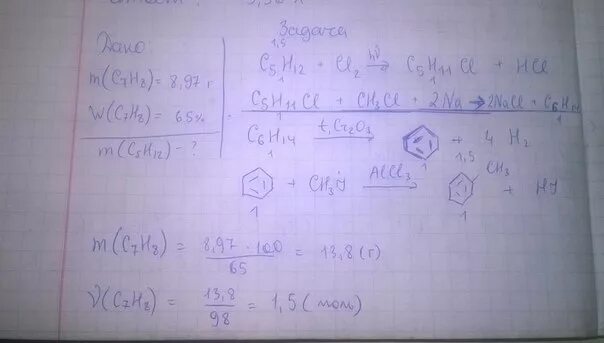 Задача
Дано:
m(C₇H₈) = 8,97 г
W(C₇H₈) = 65%
m(C₅H₁₂) - ?
1,5
C₅H₁₂ + Cl₂ hν→ C₅H₁₁Cl + HCl
1 1
C₅H₁₁Cl + CH₃Cl + 2Na → 2NaCl + C₆H₁₄
1 1
C₆H₁₄ t, Cr₂O₃→ + 4 H₂
1 1 1,5
+ CH₃J AlCl₃→ CH₃ + HJ
1 1
m(C₇H₈) = 8,97 · 100 / 65 = 13,8 (г)
ν(C₇H₈) = 13,8 / 98 = 1,5 (моль)